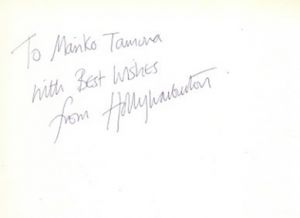 To Mariko Tamura
with Best Wishes
from Hollywarburton.